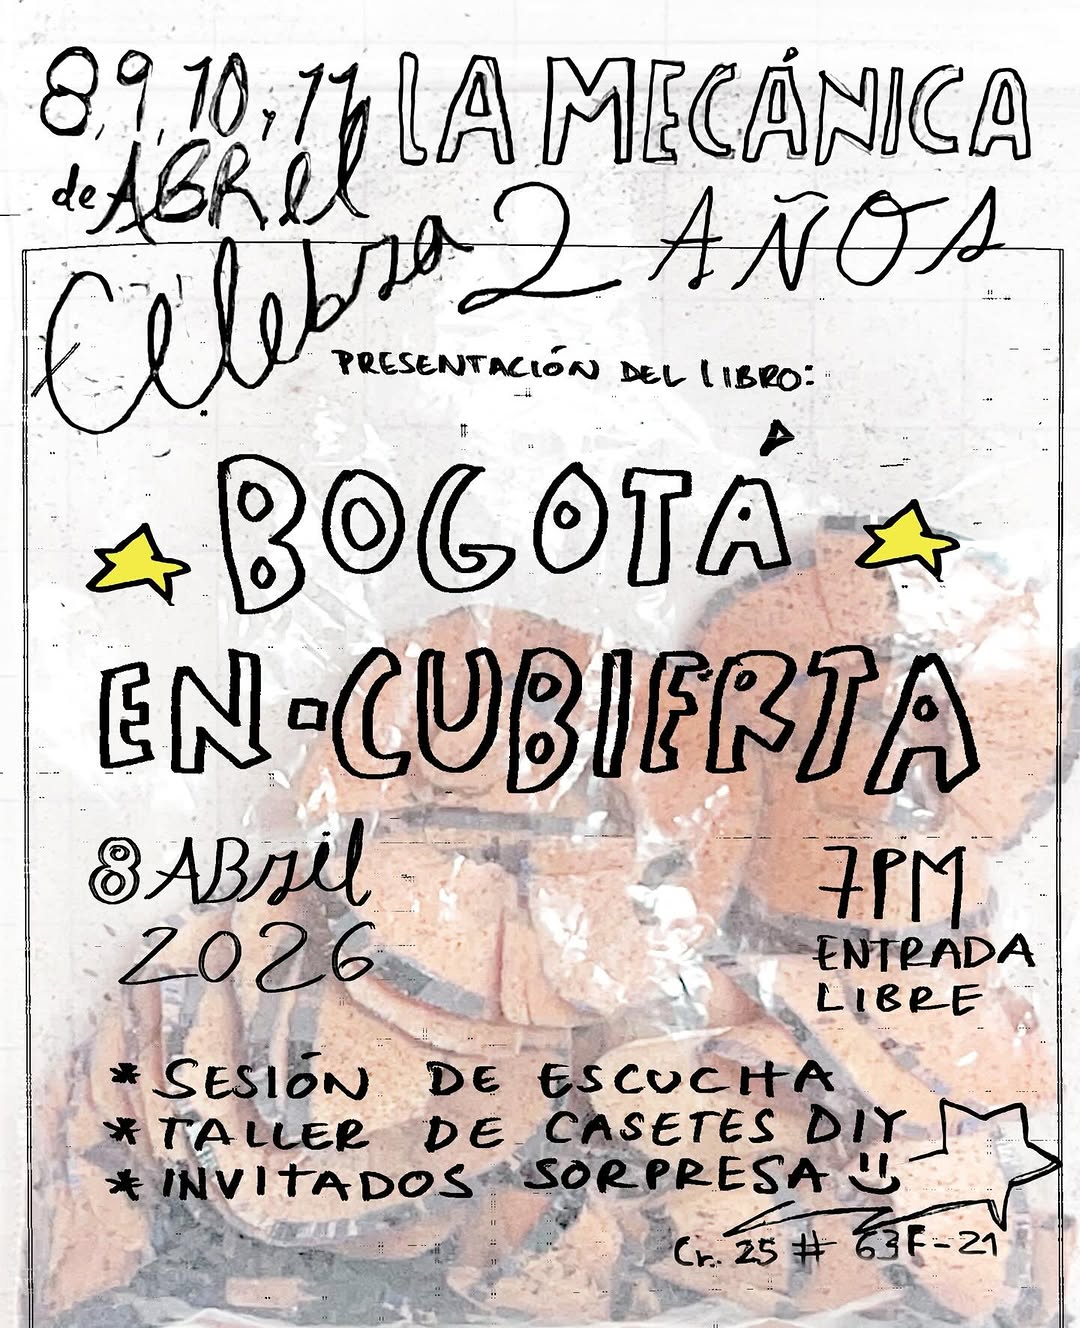 8, 9, 10, y 11
de ABRel
LA MECÁNICA
Celebra 2 AÑOS
PRESENTACIÓN DEL LIBRO:
BOGOTÁ
EN-CUBIERTA
8 ABril
2026
7PM
ENTRADA
LIBRE
* SESIÓN DE ESCUCHA
* TALLER DE CASETES DIY
* INVITADOS SORPRESA
Cr. 25 # 63F-21